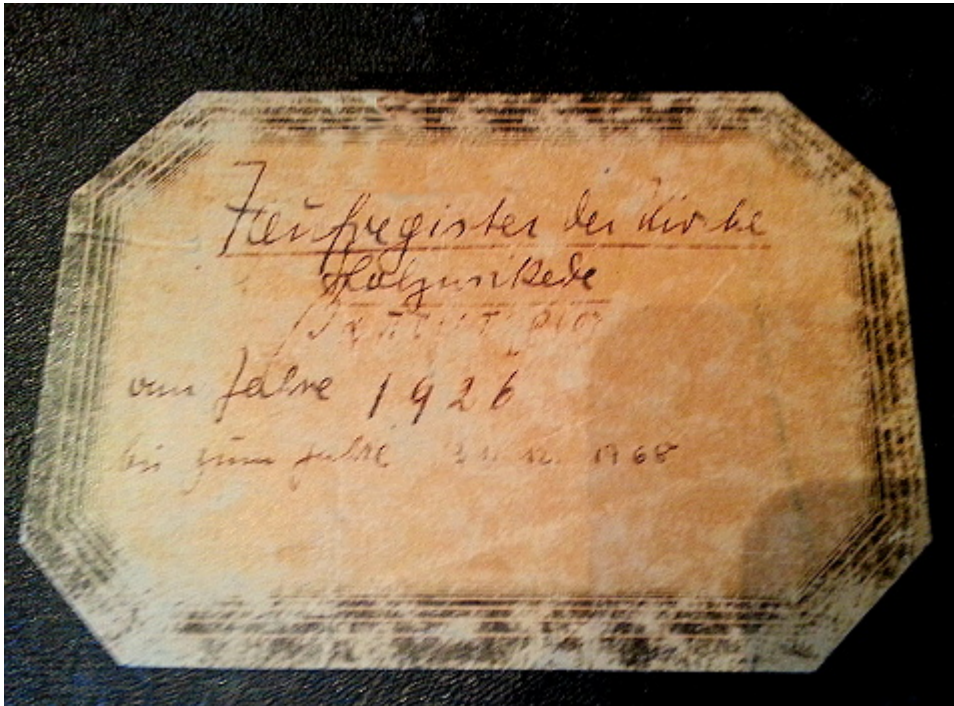 Taufregister der Kirche
Holzminkede
vom Jahre 1926
bis zum Jahre 31. 12. 1968